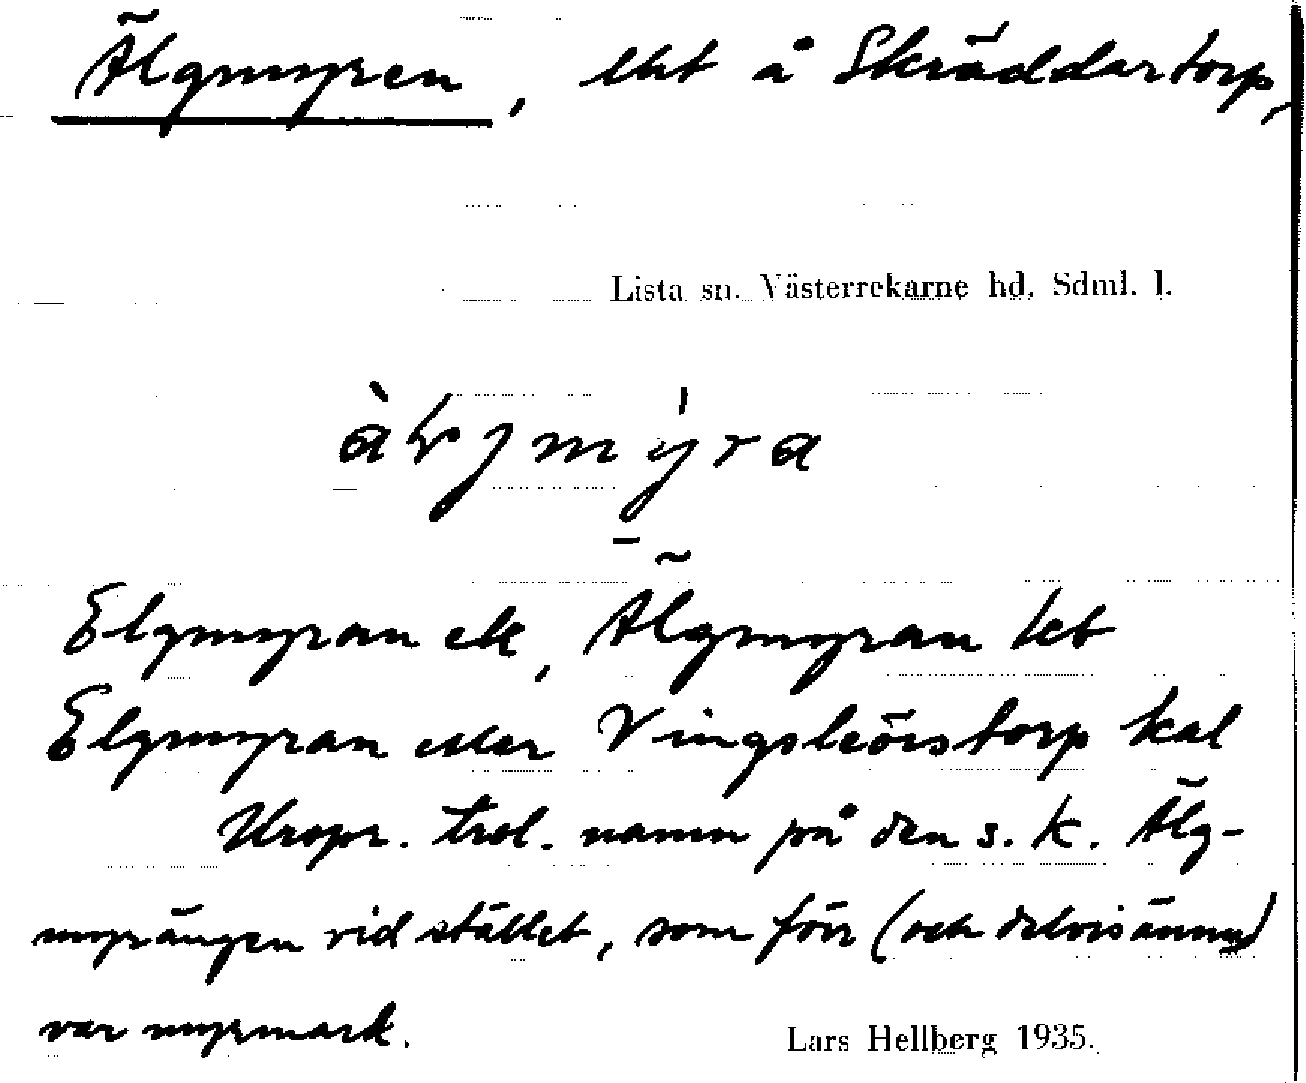 Älgmyren, lht å Skräddartorp,
Lista sn. Västerrekarne hd, Sdml. l.
Elgmyran ek, Älgmyran kt
Elgmyran eller Vingsleörstorp kal
Urspr. trol. namn på den s. k. Älg-
myrängen vid stället, som förr (och delvis ännu)
var myrmark.
Lars Hellberg 1935.